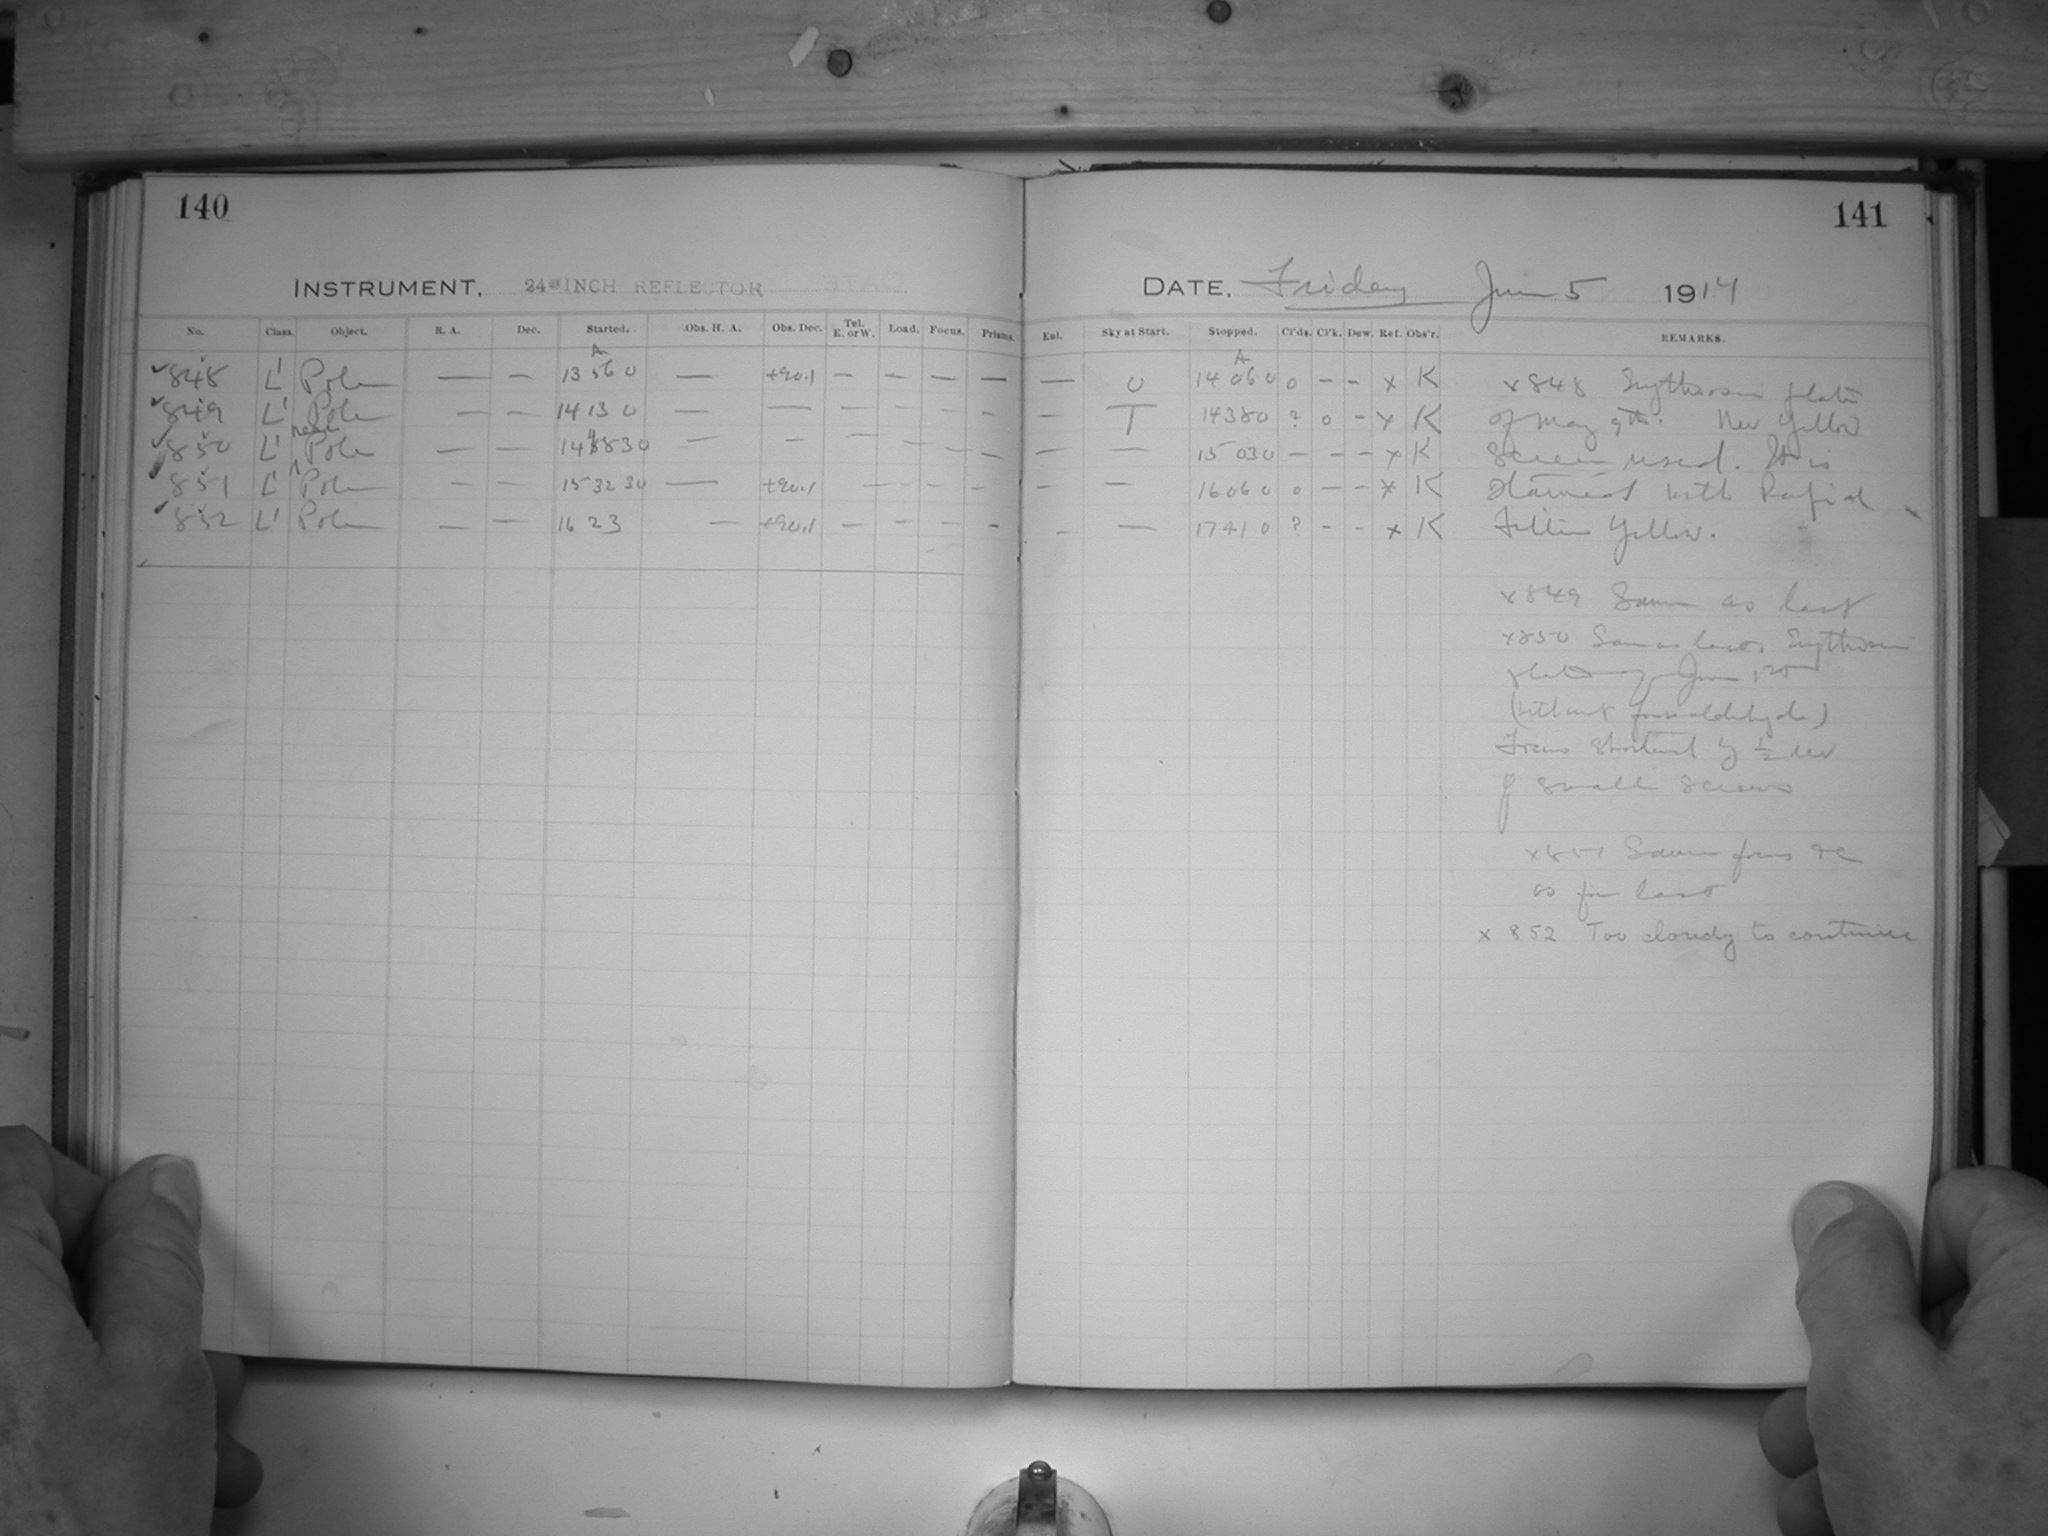 140
INSTRUMENT. 24-INCH REFLECTOR
No. Class. Object. R. A. Dec. Started. Obs. H. A. Obs. Dec. Tel. E. or W. Load. Focus. Prisms.
848 L' Pole — — 13 56 0 — +90.1 — — — —
849 L' Pole — — 14 13 0 — — — — — —
850 L' near Pole — — 14 48 30 — — — — — —
851 L' Pole — — 15 32 30 — +90.1 — — — —
852 L' Pole — — 16 23 — +90.1 — — — —
141
DATE. Friday June 5 1914
Ent. Sky at Start. Stopped. Cl'ds. Cl'k. Dew. Ref. Obs'r. REMARKS.
— 0 14 06 0 0 — — x K x 848 Erythrosin plate
— T 14 38 0 ? 0 — x K of May 9th. New Yellow
— — 15 03 0 — — — x K Screen used. It is
— — 16 06 0 0 — — x K stained with Rapid
— — 17 41 0 ? — — x K Filter Yellow.
x 849 Same as last
x 850 Same as last. Erythrosin
plate of June
(without formaldehyde)
Focus shortened by 1/2 rev
of small screws
x 851 Same focus &c
as for last
x 852 Too cloudy to continue